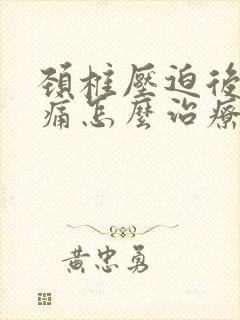 頸椎壓迫後
痛怎麼治療
黃忠勇